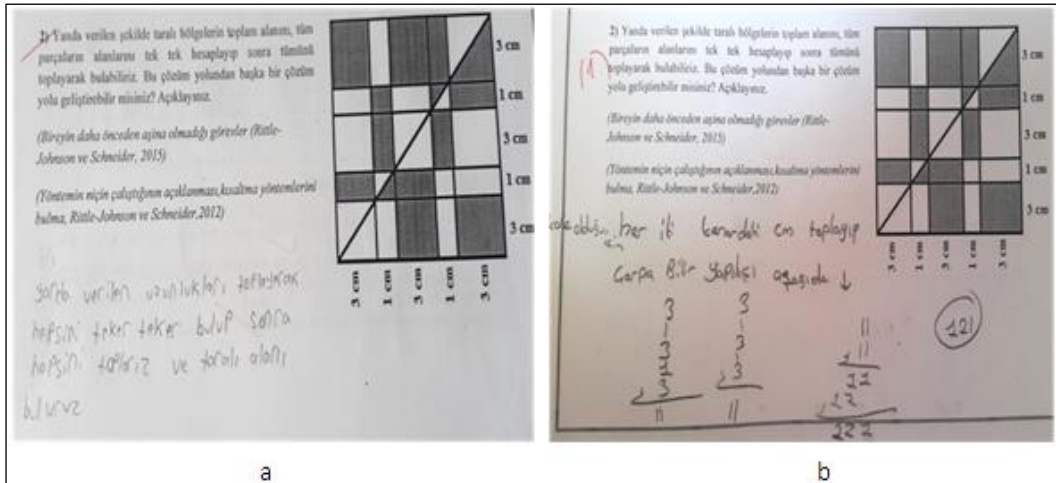 2) Yanda verilen şekilde taralı bölgelerin toplam alanını, tüm
parçaların alanlarını tek tek hesaplayıp sonra tümünü
toplayarak bulabiliriz. Bu çözüm yolundan başka bir çözüm
yolu geliştirebilir misiniz? Açıklayınız.
(Bireyin daha önceden aşina olmadığı görevler (Rittle-
Johnson ve Schneider, 2015)
(Yöntemin niçin çalıştığının açıklanması,kısaltma yöntemlerini
bulma, Rittle-Johnson ve Schneider,2012)
3 cm
1 cm
3 cm
1 cm
3 cm
3 cm
1 cm
3 cm
1 cm
3 cm
verilen uzunlukları toplayarak
hepsini teker teker bulup sonra
hepsini toplarız ve taralı alanı
buluruz
a
2) Yanda verilen şekilde taralı bölgelerin toplam alanını, tüm
parçaların alanlarını tek tek hesaplayıp sonra tümünü
toplayarak bulabiliriz. Bu çözüm yolundan başka bir çözüm
yolu geliştirebilir misiniz? Açıklayınız.
(Bireyin daha önceden aşina olmadığı görevler (Rittle-
Johnson ve Schneider, 2015)
(Yöntemin niçin çalıştığının açıklanması,kısaltma yöntemlerini
bulma, Rittle-Johnson ve Schneider,2012)
3 cm
1 cm
3 cm
1 cm
3 cm
3 cm
1 cm
3 cm
1 cm
3 cm
her iki kenardaki cm toplayıp
Çarpa Bilir yapılışı aşağıda ↓
3
3
3
11
3
3
11
11
11
22
22
222
121
b